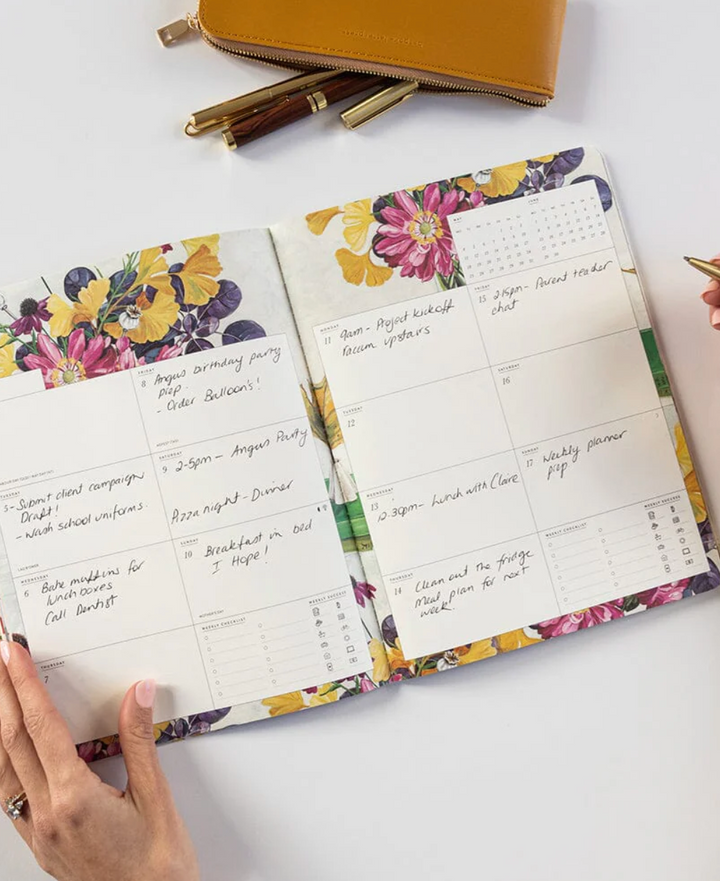 FRIDAY
8 Angus birthday party
prep.
- Order Balloon's!
TUESDAY
5 - Submit client campaign
Draft!
- Wash school uniforms.
SATURDAY
9 2-5pm - Angus Party
Pizza night - Dinner
WEDNESDAY
6 Bake muffins for
lunch boxes
Call Dentist
SUNDAY
10 Breakfast in bed
I Hope!
THURSDAY
7
WEEKLY CHECKLIST
MAY
JUNE
MONDAY
11 9am - Project kickoff
raccum upstairs
FRIDAY
15 2:15pm - Parent teacher
chat
TUESDAY
12
SATURDAY
16
13
12.30pm - Lunch with Claire
SUNDAY
17 Weekly planner
prep
THURSDAY
14 Clean out the fridge
Meal plan for next
week.
WEEKLY CHECKLIST
WEEKLY SUCCESS